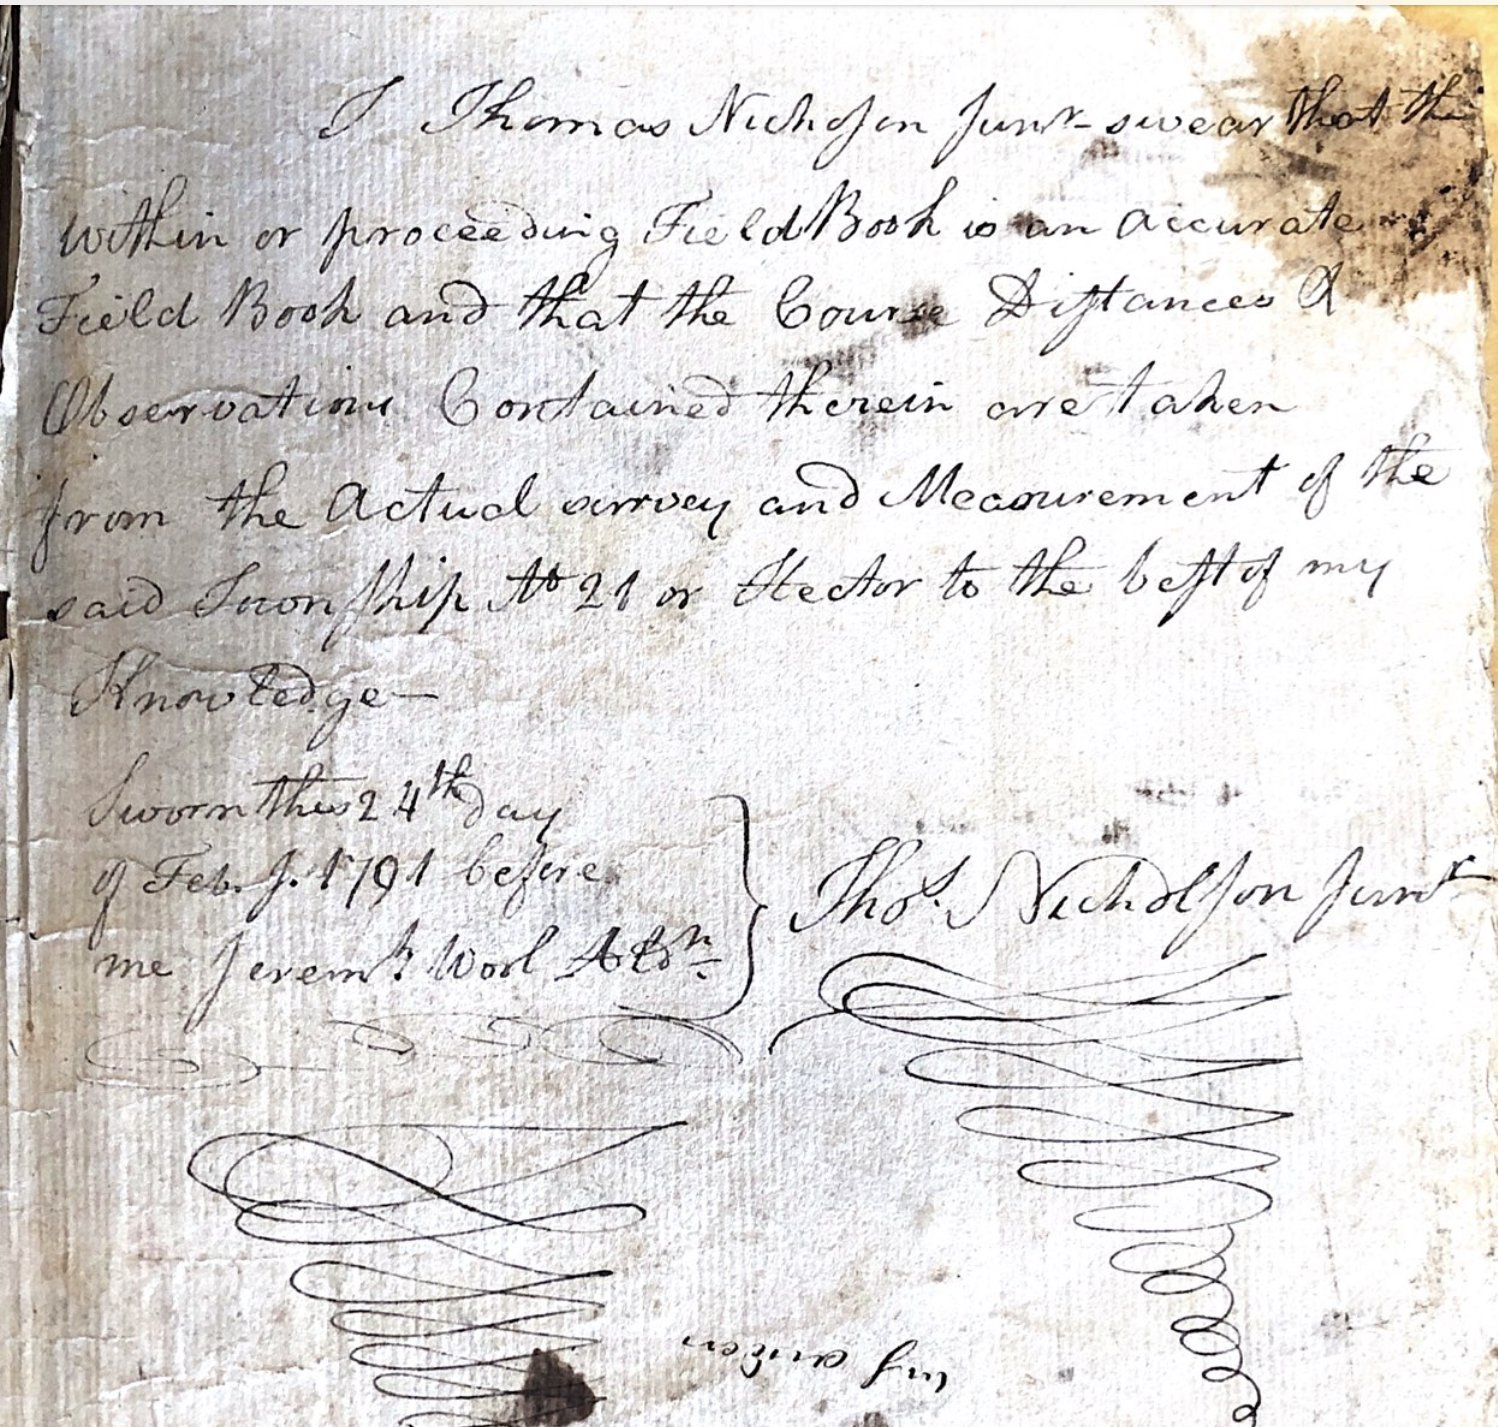 I Thomas Nicholson Junr swear that the
within or proceeding Field Book is an accurate
Field Book and that the Course Distances &
Observations Contained therein are taken
from the Actual survey and Measurement of the
said Township No 21 or Hector to the best of my
Knowledge —
Sworn this 24th day
of Feb. J. 1791 before
me Jeremh Wool Aldn
Thos. Nicholson Junr
my